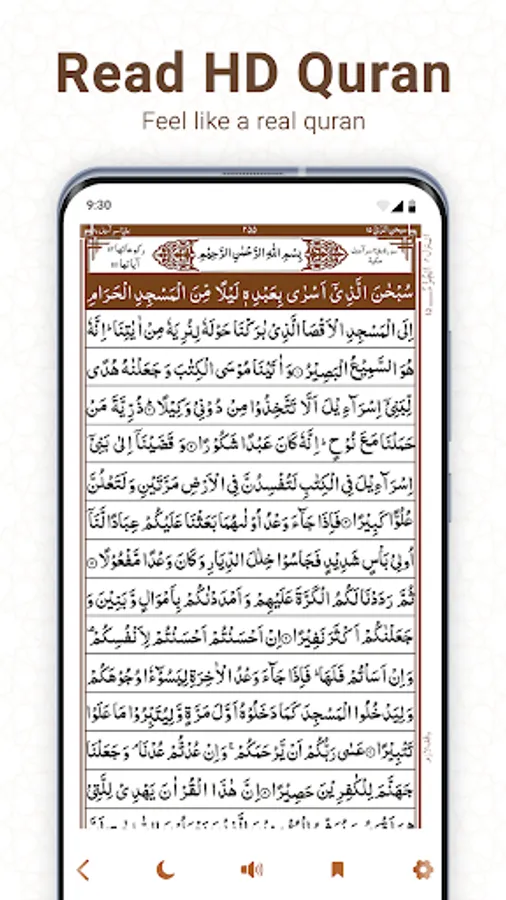 Read HD Quran
Feel like a real quran
9:30
۲۵۵
بِسْمِ اللّٰهِ الرَّحْمٰنِ الرَّحِیْمِ
سُبْحٰنَ الَّذِیْۤ اَسْرٰی بِعَبْدِهٖ لَیْلًا مِّنَ الْمَسْجِدِ الْحَرَامِ
اِلَی الْمَسْجِدِ الْاَقْصَا الَّذِیْ بٰرَكْنَا حَوْلَهٗ لِنُرِیَهٗ مِنْ اٰیٰتِنَا ؕ اِنَّهٗ
هُوَ السَّمِیْعُ الْبَصِیْرُ ۝ وَ اٰتَیْنَا مُوْسَی الْكِتٰبَ وَ جَعَلْنٰهُ هُدًی
لِّبَنِیْۤ اِسْرَآءِیْلَ اَلَّا تَتَّخِذُوْا مِنْ دُوْنِیْ وَكِیْلًا ۝ ذُرِّیَّةَ مَنْ
حَمَلْنَا مَعَ نُوْحٍ ؕ اِنَّهٗ كَانَ عَبْدًا شَكُوْرًا ۝ وَ قَضَیْنَاۤ اِلٰی بَنِیْۤ
اِسْرَآءِیْلَ فِی الْكِتٰبِ لَتُفْسِدُنَّ فِی الْاَرْضِ مَرَّتَیْنِ وَ لَتَعْلُنَّ
عُلُوًّا كَبِیْرًا ۝ فَاِذَا جَآءَ وَعْدُ اُوْلٰىهُمَا بَعَثْنَا عَلَیْكُمْ عِبَادًا لَّنَاۤ
اُولِیْ بَاْسٍ شَدِیْدٍ فَجَاسُوْا خِلٰلَ الدِّیَارِ وَ كَانَ وَعْدًا مَّفْعُوْلًا ۝
ثُمَّ رَدَدْنَا لَكُمُ الْكَرَّةَ عَلَیْهِمْ وَ اَمْدَدْنٰكُمْ بِاَمْوَالٍ وَّ بَنِیْنَ وَ
جَعَلْنٰكُمْ اَكْثَرَ نَفِیْرًا ۝ اِنْ اَحْسَنْتُمْ اَحْسَنْتُمْ لِاَنْفُسِكُمْ
وَ اِنْ اَسَاْتُمْ فَلَهَا ؕ فَاِذَا جَآءَ وَعْدُ الْاٰخِرَةِ لِیَسُوْٓءٗا وُجُوْهَكُمْ
وَ لِیَدْخُلُوا الْمَسْجِدَ كَمَا دَخَلُوْهُ اَوَّلَ مَرَّةٍ وَّ لِیُتَبِّرُوْا مَا عَلَوْا
تَتْبِیْرًا ۝ عَسٰی رَبُّكُمْ اَنْ یَّرْحَمَكُمْ ۚ وَ اِنْ عُدْتُّمْ عُدْنَا ۘ وَ جَعَلْنَا
جَهَنَّمَ لِلْكٰفِرِیْنَ حَصِیْرًا ۝ اِنَّ هٰذَا الْقُرْاٰنَ یَهْدِیْ لِلَّتِیْ